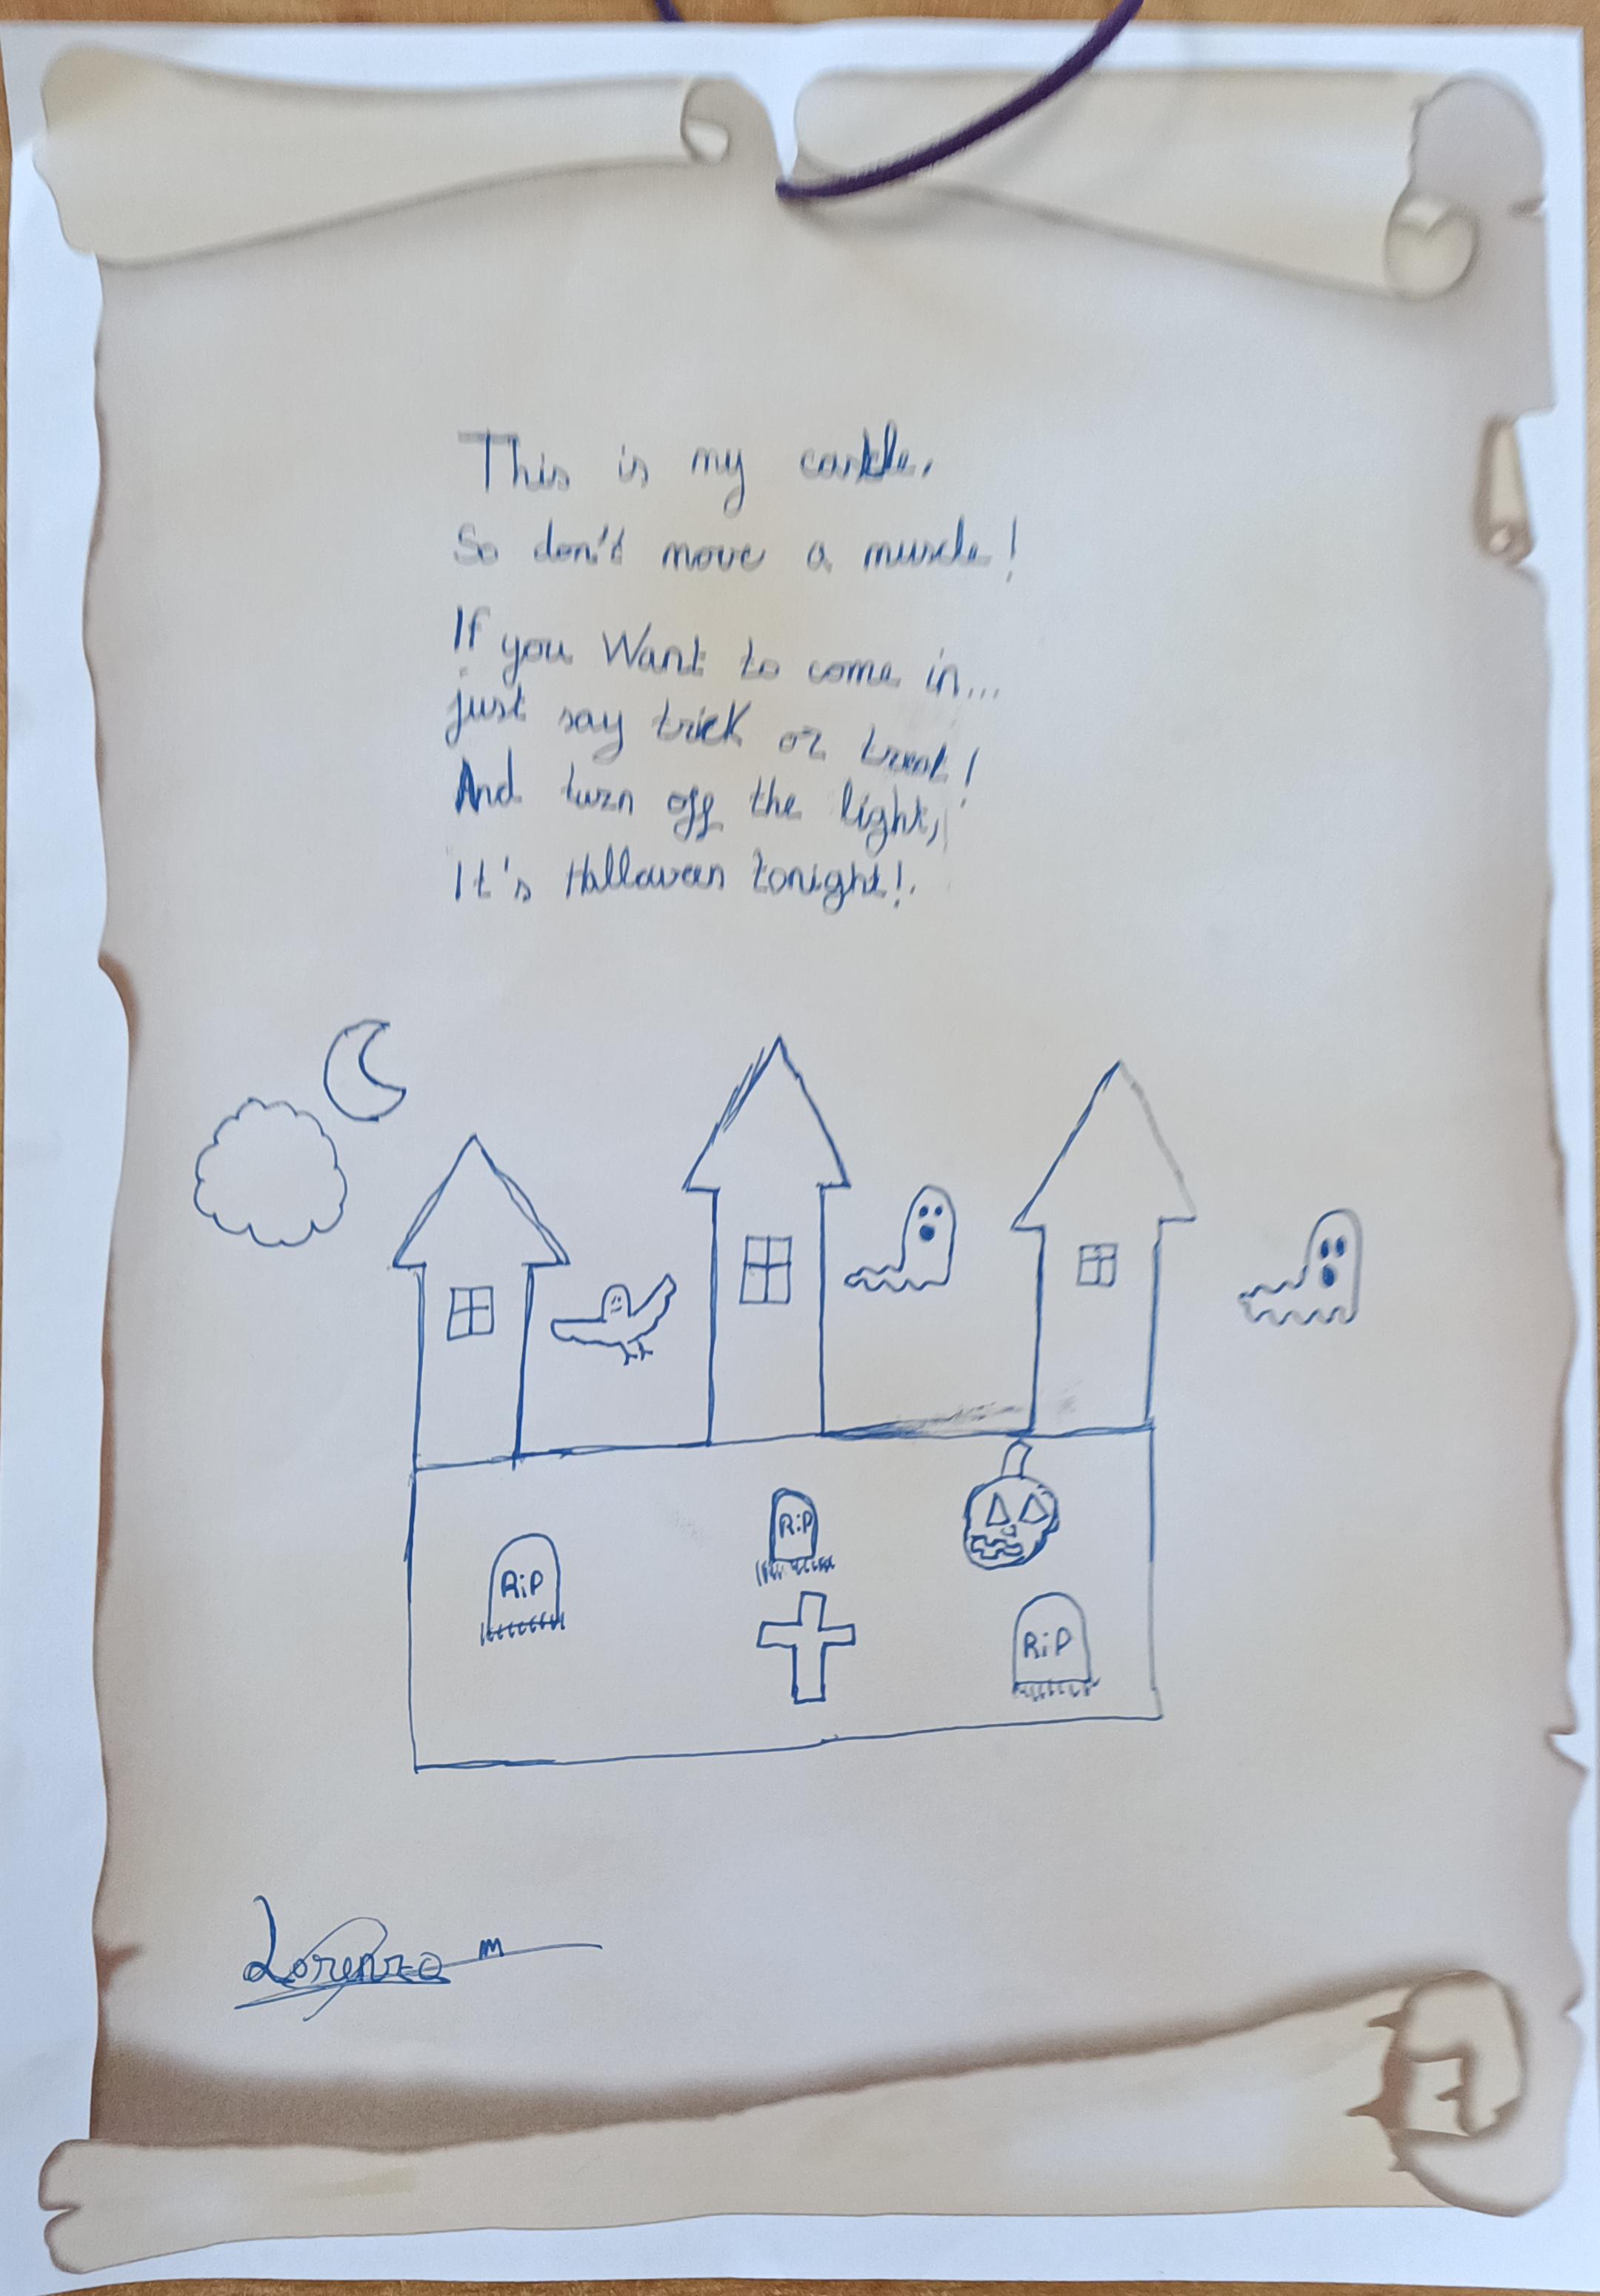 This is my castle,
So don't move a muscle!
If you Want to come in...
just say trick or treat!
And turn off the light,
It's Halloween tonight!.
RiP
RiP
RiP
Lorenzo M